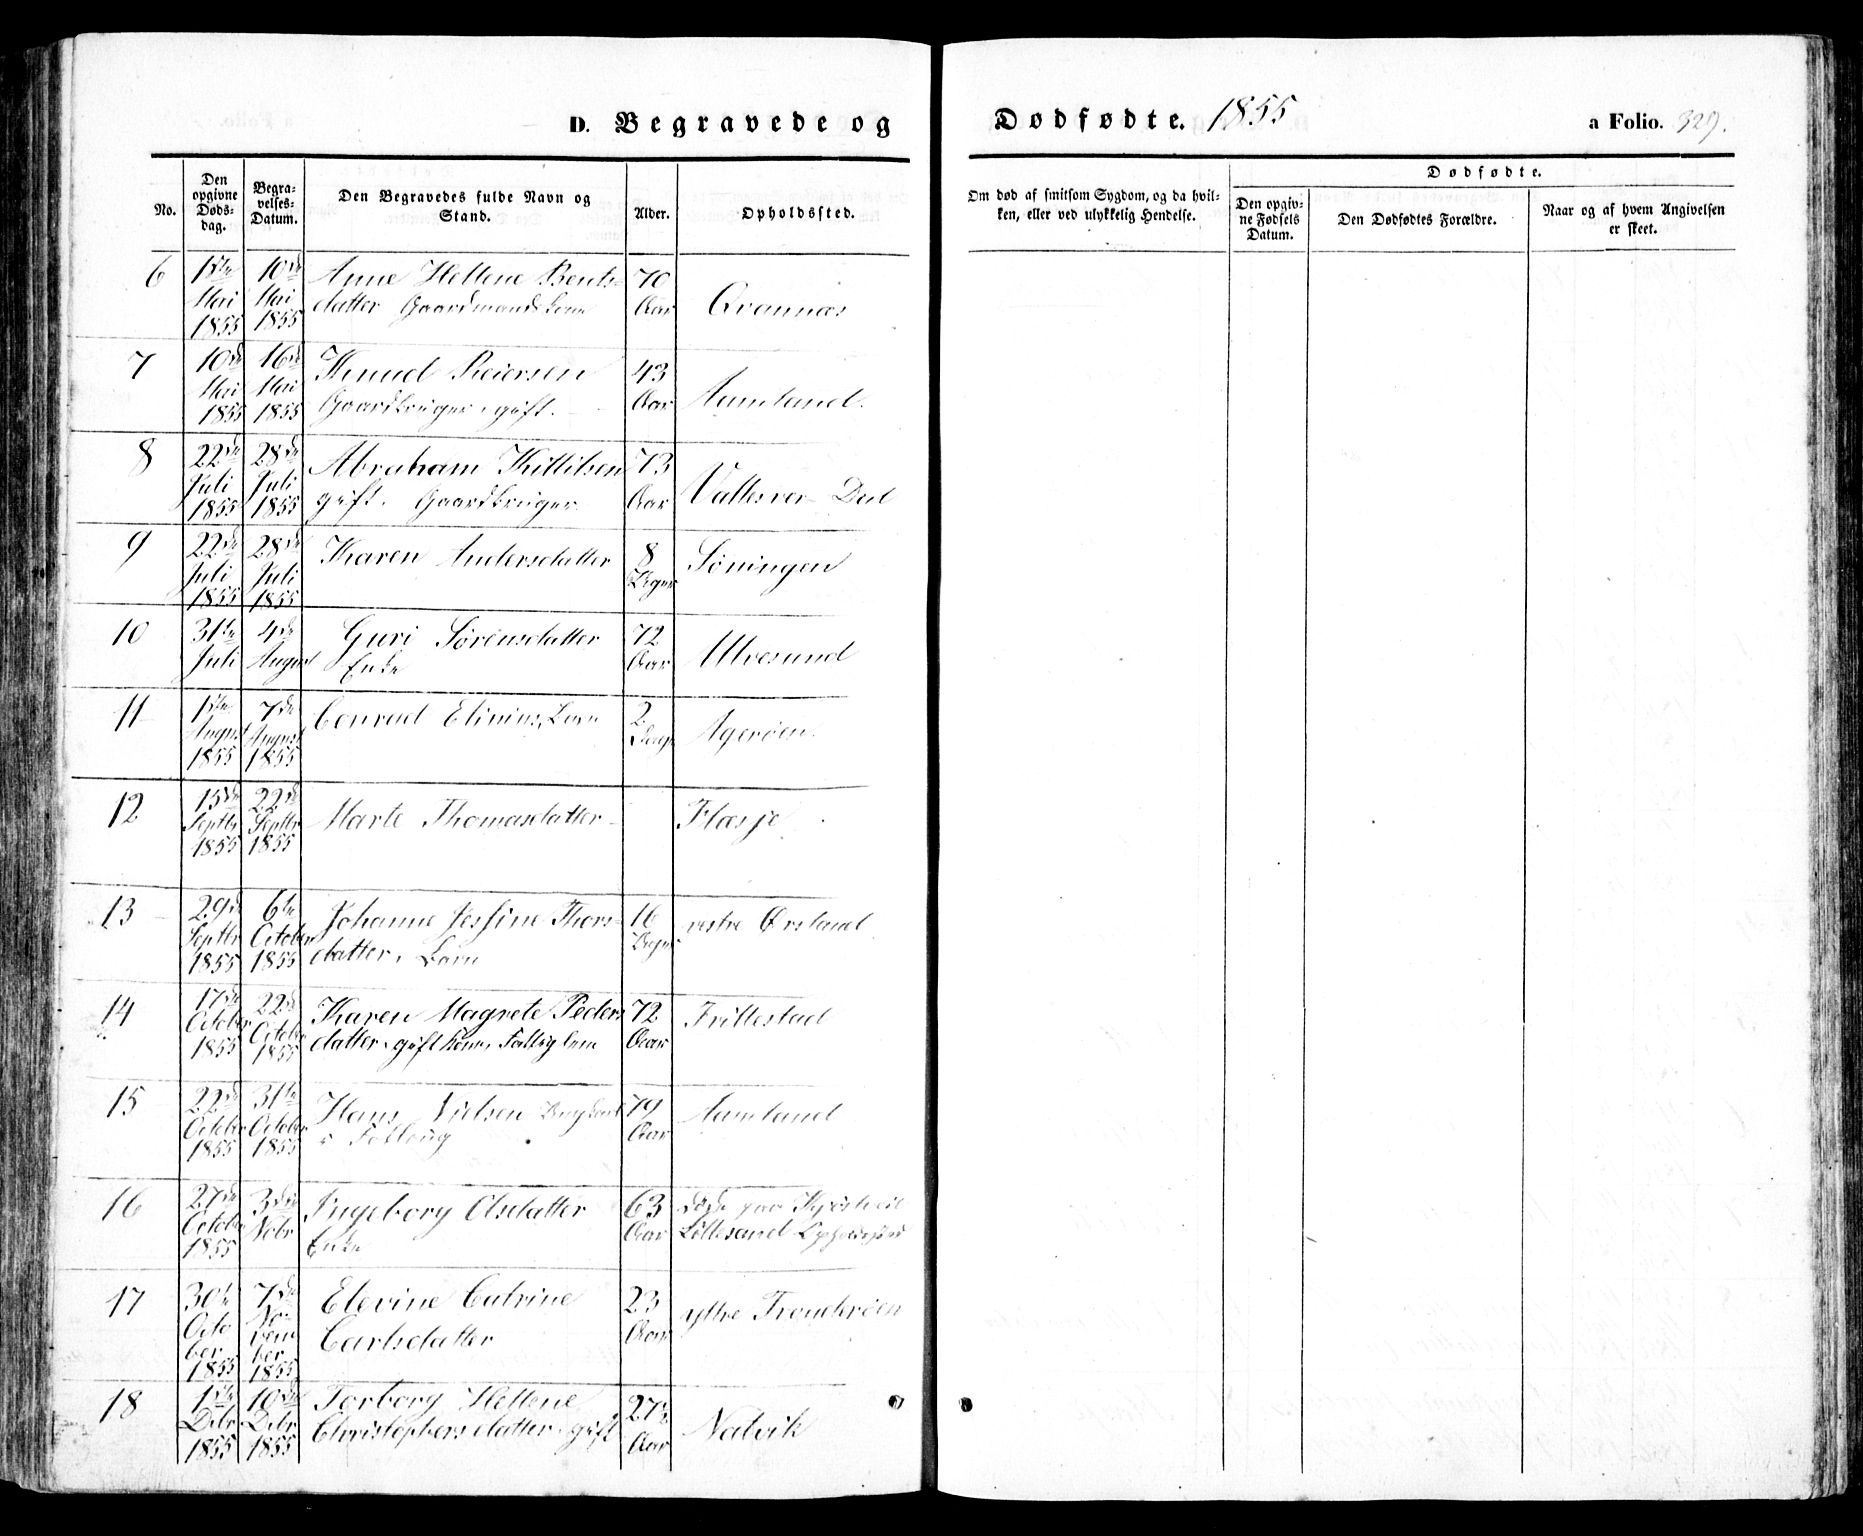 D. Begravede og
Dødfødte. 1855
a Folio. 329.
No.
Den opgivne Døds-dag.
Begra-velses-Datum.
Den Begravedes fulde Navn og Stand.
Alder.
Opholdssted.
Om død af smitsom Sygdom, og da hvil-ken, eller ved ulykkelig Hendelse.
Dødfødte.
Den opgiv-ne Fødsels Datum.
Den Dødfødtes Forældre.
Naar og af hvem Angivelsen er skeet.
6 1ste Mai 1855 10de Mai 1855 Anne Hellene Bents-
datter Gaardmandskone 70 Aar Grannæs
7 10de Mai 1855 16de Mai 1855 Knud Reiersen
Gaardbruger, gift. 43 Aar Aamland.
8 22de Juli 1855 28de Juli 1855 Abraham Kittilsen
gift. Gaardbruger. 73 Aar Vallesver Dal
9 22de Juli 1855 28de Juli 1855 Karen Andersdatter 8 Dager Søningen
10 31te Juli 4de August Guri Sørensdatter
Enke 72 Aar Ulvesund
11 1ste August 1855 7de August 1855 Conrad Elinius, Barn 2 Agerøen.
12 15de Septbr 1855 22de Septbr 1855 Marte Thomasdatter Flasje
13 29de Septbr 1855 6te October 1855 Johanne Jessine Thors-
datter, Barn 16 Dager vestre Ørsland
14 17de October 1855 22de October 1855 Karen Magrete Peders
datter, gift Kone, Fattiglem 72 Aar Frillestad
15 22de October 1855 31te October 1855 Hans Nielsen
79 Aar Aamland
16 27de October 1855 3die Novbr Ingeborg Olsdatter
Enke 63 Aar Døde paa
Lillesand Opholdssted
17 30te October 1855 7de November 1855 Elevine Catrine
Carlsdatter 23 Aar ytre Trønderøen
18 1ste Debr 1855 10de Debr 1855 Torborg Hellene
Christophersdatter, gift 27½ Aar Natvik